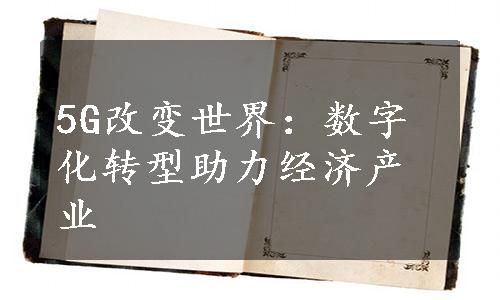 5G改变世界：数字
化转型助力经济产
业